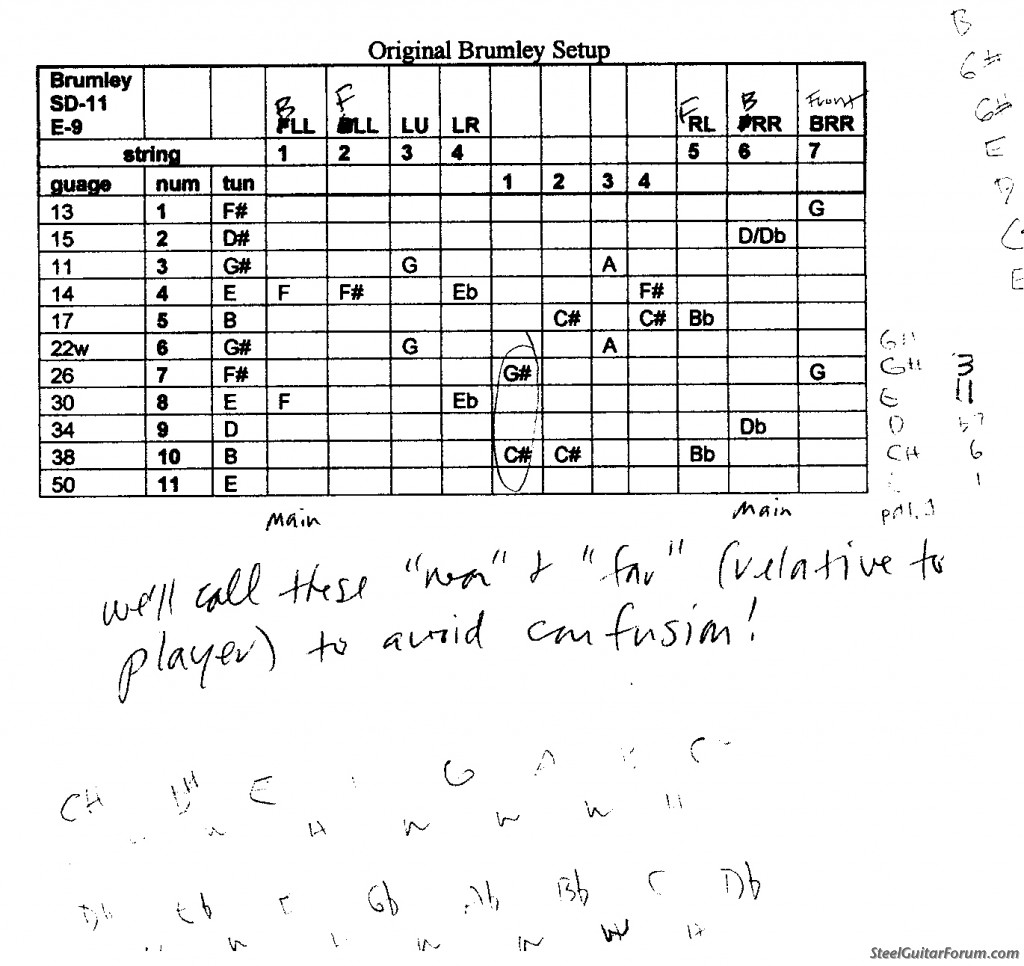 Original Brumley Setup
Brumley
SD-11
E-9
B F Front
LL LL LU LR F RL B RR BRR
string 1 2 3 4 5 6 7
guage num tun 1 2 3 4
13 1 F# G
15 2 D# D/Db
11 3 G# G A
14 4 E F F# Eb F#
17 5 B C# C# Bb
22w 6 G# G A
26 7 F# G# G
30 8 E F Eb
34 9 D Db
38 10 B C# C# Bb
50 11 E
B
G#
G#
E
D
E
G#
G# 3
E 11
D b7
C# 6
1
Main Main
we'll call these "near" & "far" (relative to
player) to avoid confusion!
C# D# E G A C
W H W W W H
Db Eb Gb Ab Bb C Db
W W W W H
SteelGuitarForum.com